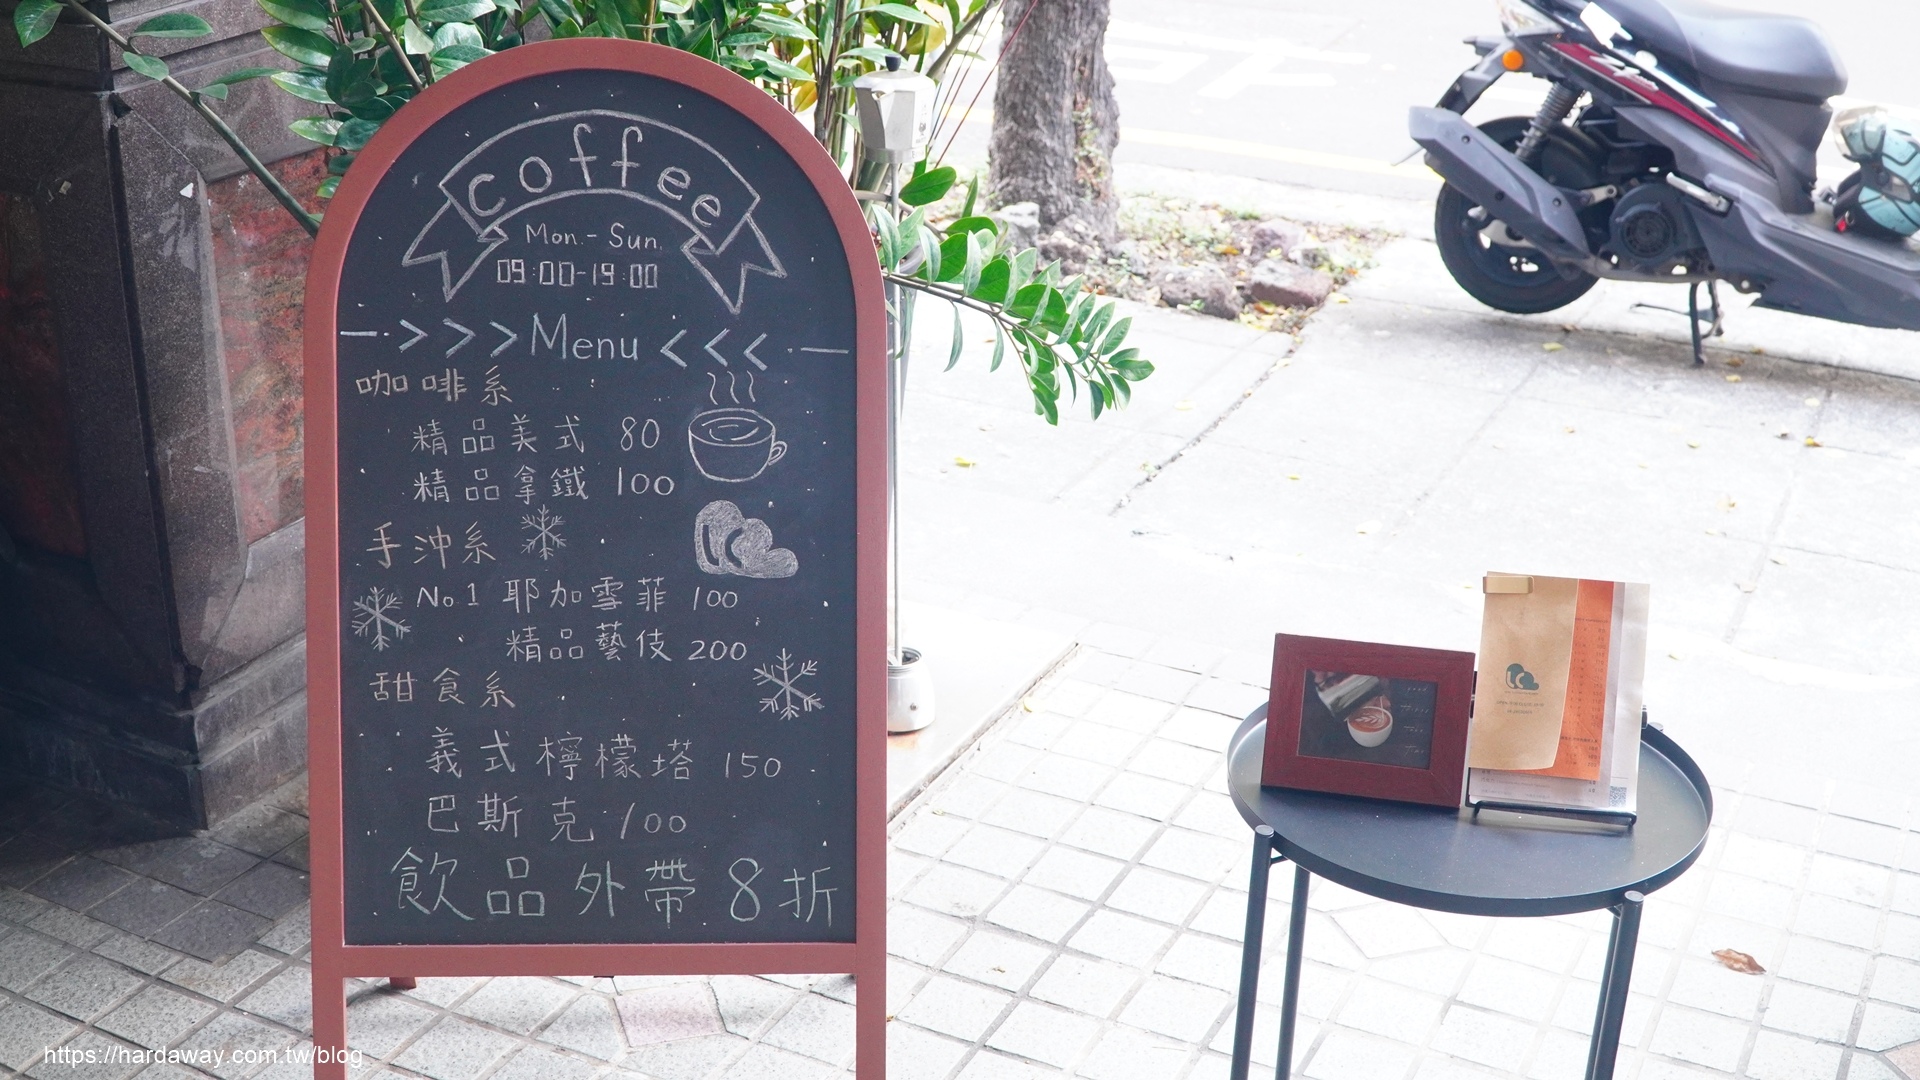 coffee
Mon.-Sun.
09:00-19:00
—>>>Menu<<<—
咖啡系
精品美式 80
精品拿鐵 100
手沖系
No.1 耶加雪菲 100
精品藝伎 200
甜食系
義式檸檬塔 150
巴斯克 100
飲品外帶8折
https://hardaway.com.tw/blog